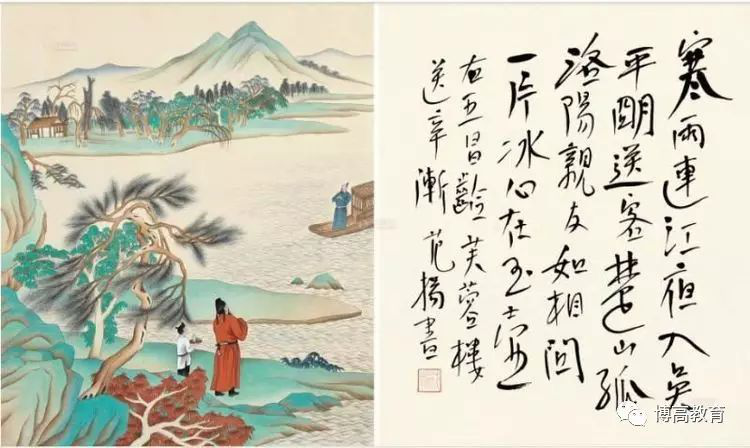 寒雨連江夜入吴
平明送客楚山孤
洛陽親友如相问
一片冰心在玉壶
右王昌齡芙蓉樓
送辛漸 范揚書
博高教育